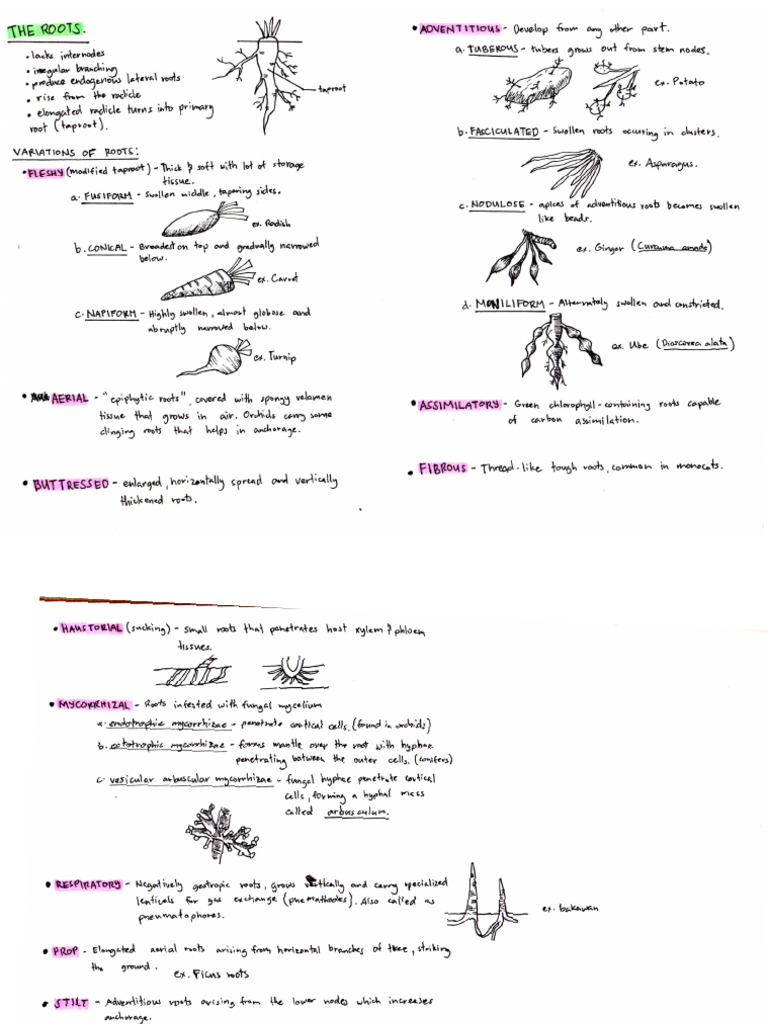 THE ROOTS.
• lacks internodes
• irregular branching
• produce endogenous lateral roots
• rise from the radicle
• elongated radicle turns into primary
root (taproot).
taproot
VARIATIONS OF ROOTS:
• FLESHY (modified taproot) - Thick & soft with lot of storage
tissue.
a. FUSIFORM - Swollen middle, tapering sides.
ex. Radish
b. CONICAL - Broadest on top and gradually narrowed
below.
ex. Carrot
c. NAPIFORM - Highly swollen, almost globose and
abruptly narrowed below.
ex. Turnip
• AERIAL - "epiphytic roots", covered with spongy velamen
tissue that grows in air. Orchids carry some
clinging roots that helps in anchorage.
• BUTTRESSED - enlarged, horizontally spread and vertically
thickened roots.
• ADVENTITIOUS - Develop from any other part.
a. TUBEROUS - tubers grows out from stem nodes.
ex. Potato
b. FASCICULATED - Swollen roots occuring in clusters.
ex. Asparagus.
c. NODULOSE - apices of adventitious roots becomes swollen
like beads.
ex. Ginger (Curcuma amada)
d. MONILIFORM - Alternately swollen and constricted.
ex. Ube (Dioscorea alata)
• ASSIMILATORY - Green chlorophyll-containing roots capable
of carbon assimilation.
• FIBROUS - Thread-like tough roots, common in monocots.
• HAUSTORIAL (sucking) - small roots that penetrates host xylem & phloem
tissues.
• MYCORRHIZAL - Roots infested with fungal mycelium
a. endotrophic mycorrhizae - penetrate cortical cells. (found in orchids)
b. ectotrophic mycorrhizae - forms mantle over the root with hyphae
penetrating between the outer cells. (conifers)
c. vesicular arbuscular mycorrhizae - fungal hyphae penetrate cortical
cells, forming a hyphal mass
called arbusculum.
• RESPIRATORY - Negatively geotropic roots, grows vertically and carry specialized
lenticels for gas exchange (pneumathodes). Also called as
pneumatophores.
ex. bakawan
• PROP - Elongated aerial roots arising from horizontal branches of tree, striking
the ground.
ex. Ficus roots
• STILT - Adventitious roots arising from the lower nodes which increases
anchorage.